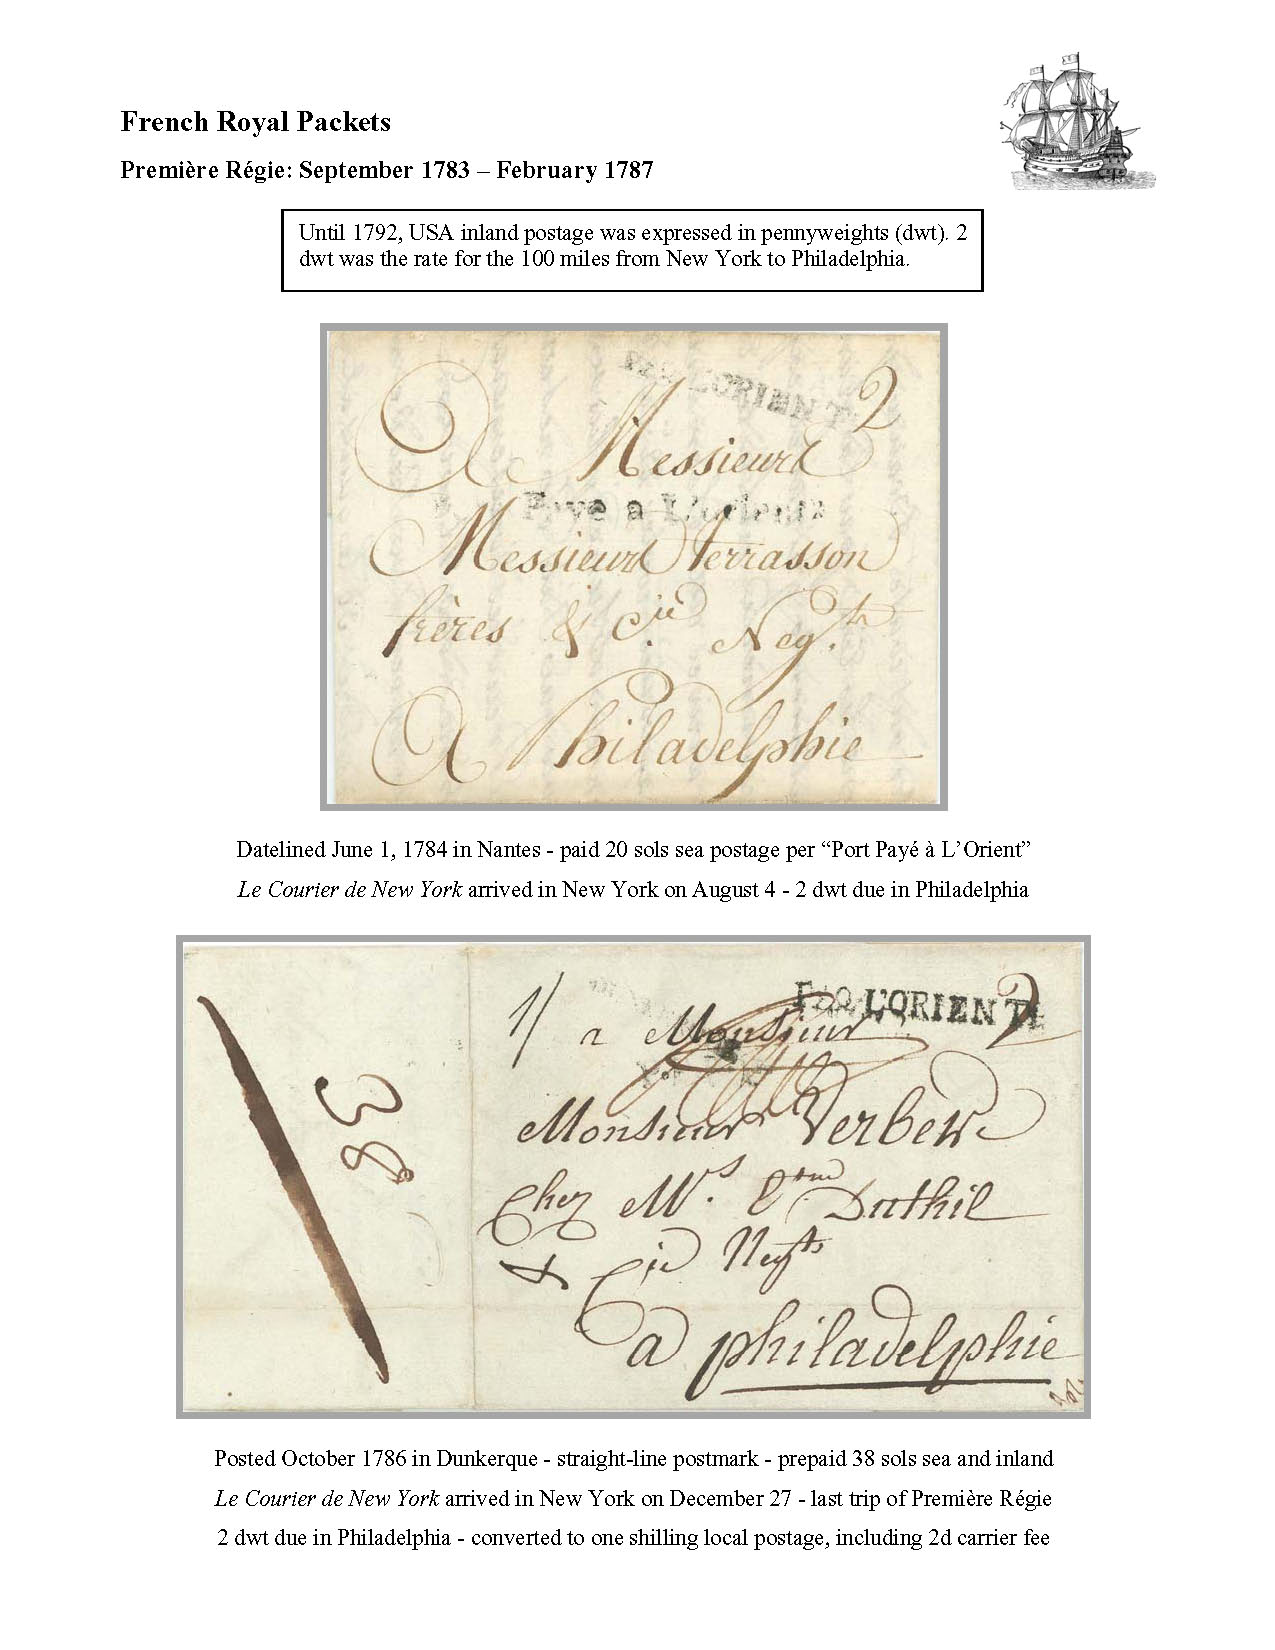 French Royal Packets
Première Régie: September 1783 – February 1787
Until 1792, USA inland postage was expressed in pennyweights (dwt). 2
dwt was the rate for the 100 miles from New York to Philadelphia.
2
A Messieurs
Payé a L'orient
Messieurs terrasson
frères & Cie. Negts.
A Philadelphie
Datelined June 1, 1784 in Nantes - paid 20 sols sea postage per “Port Payé à L’Orient”
Le Courier de New York arrived in New York on August 4 - 2 dwt due in Philadelphia
L'ORIENT
1/ a Monsieur 2
38
Monsieur
Chez Ms. Duthil
& Cie Negts
a philadelphie
Posted October 1786 in Dunkerque - straight-line postmark - prepaid 38 sols sea and inland
Le Courier de New York arrived in New York on December 27 - last trip of Première Régie
2 dwt due in Philadelphia - converted to one shilling local postage, including 2d carrier fee